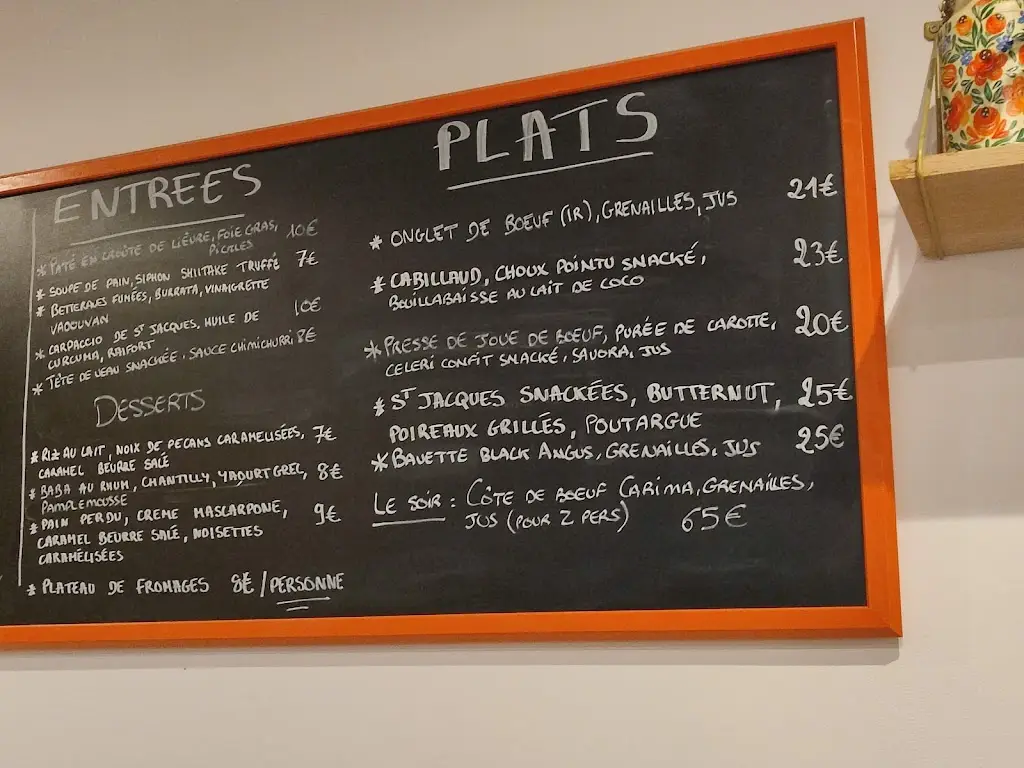 ENTREES
* PATÉ EN CROÛTE DE LIÈVRE, FOIE GRAS, 10€
PICKLES
* SOUPE DE PAIN, SIPHON SHIITAKE TRUFFÉ 7€
* BETTERAVES FUMÉES, BURRATA, VINAIGRETTE
VADOUVAN 10€
* CARPACCIO DE ST JACQUES, HUILE DE
CURCUMA, RAIFORT
* TÊTE DE VEAU SNACHÉE, SAUCE CHIMICHURRI 8€
DESSERTS
* RIZ AU LAIT, NOIX DE PECANS CARAMELISÉES, 7€
CARAMEL BEURRE SALÉ
* BABA AU RHUM, CHANTILLY, YAOURT GREC, 8€
PAMPLEMOUSSE
* PAIN PERDU, CREME MASCARPONE, 9€
CARAMEL BEURRE SALÉ, NOISETTES
CARAMÉLISÉES
* PLATEAU DE FROMAGES 8€/PERSONNE
PLATS
* ONGLET DE BOEUF (IR), GRENAILLES, JUS 21€
* CABILLAUD, CHOUX POINTU SNACKÉ, 23€
BOUILLABAISSE AU LAIT DE COCO
* PRESSE DE JOUE DE BOEUF, PURÉE DE CAROTTE, 20€
CELERI CONFIT SNACKÉ, SAVORA, JUS
* ST JACQUES SNACKÉES, BUTTERNUT, 25€
POIREAUX GRILLÉS, POUTARGUE
* BAVETTE BLACK ANGUS, GRENAILLES, JUS 25€
LE SOIR : CÔTE DE BOEUF CARIMA, GRENAILLES,
JUS (POUR 2 PERS) 65€